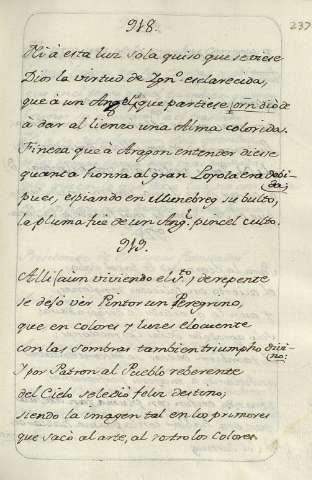 918.
237
Ni à esta luz sola quiso que se viese
Dios la virtud de Ygn.º esclarecida,
que à un Angel, que partiese orn dió de
à dar al lienzo una Alma colorida.
Fineza que à Aragon entender diese
quanta honra al gran Loyola era debi-
da;
pues, espiando en Munebreg su bulto,
la pluma fue de un Ang.l pincel culto.
919.
Alli (aun viviendo el S.to) de repente
se dejó ver Pintor un Peregrino,
que en colores y luzes eloquente
con las sombras tambien triumpho divi-
no:
Y por Patron al Pueblo reberente
del Cielo se le dió feliz destino;
siendo la imagen tal en los primores
que sacò al arte, al rostro los colores